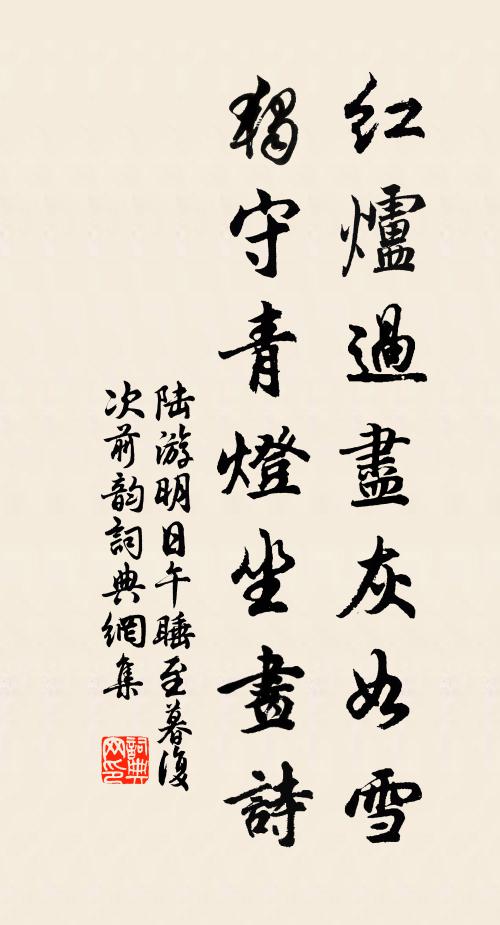 红爐過盡灰如雪
獨守青燈坐畫詩
陆游明日午睡至暮復
次前韵詞典網集
詞典
网印